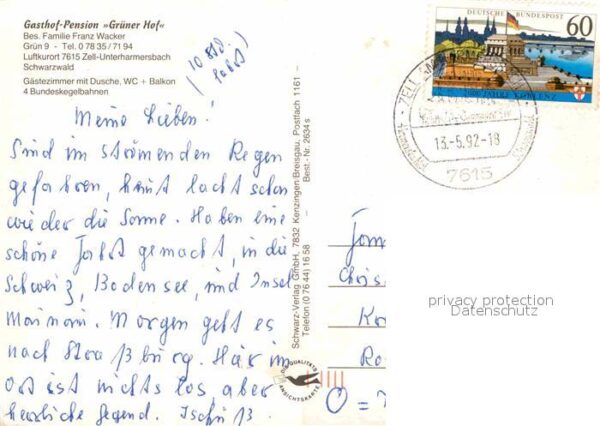 Gasthof-Pension »Grüner Hof«
Bes. Familie Franz Wacker
Grün 9 - Tel. 0 78 35 / 71 94
Luftkurort 7615 Zell-Unterharmersbach
Schwarzwald
Gästezimmer mit Dusche, WC + Balkon
4 Bundeskegelbahnen
Meine Lieben!
Sind im strömenden Regen
gefahren, heut lacht schon
wieder die Sonne. Haben eine
schöne Fahrt gemacht, in die
Schweiz, Bodensee, und Insel
Mainau. Morgen geht es
nach Straßburg. Hier im
Ort ist nichts los, aber
herrliche Gegend. Tschüß.
Schwarz-Verlag GmbH, 7832 Kenzingen/Breisgau, Postfach 1161 —
Telefon (0 76 44) 16 58 — Best.-Nr. 2634 s
DIE QUALITÄTS
ANSICHTSKARTE
DEUTSCHE BUNDESPOST
60
2000 JAHRE KOBLENZ
13.-5.92-18
7615
privacy protection
Datenschutz